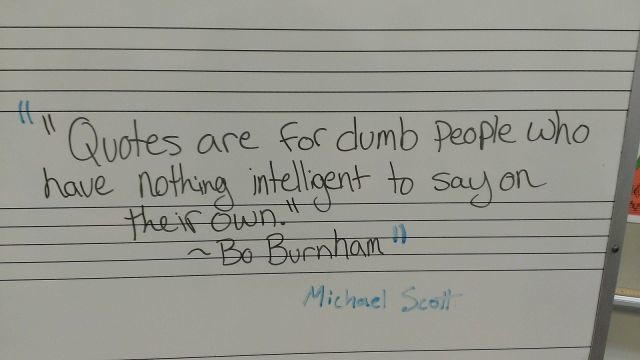 " "Quotes are for dumb people who
have nothing intelligent to say on
their own."
~ Bo Burnham"
Michael Scott